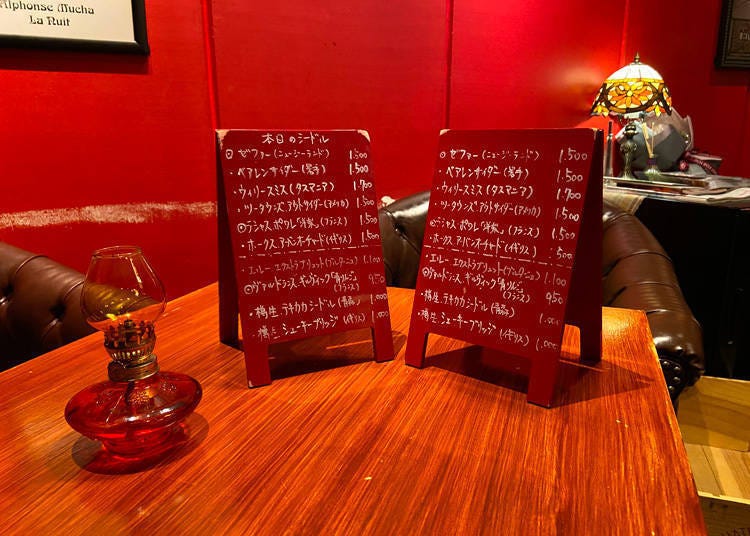 Alphonse Mucha
La Nuit
本日のシードル
◎ ゼファー(ニュージーランド) 1.500
・ベアレンサイダー(岩手) 1.500
・ウィリースミス(タスマニア) 1.700
・ツータウンズアウトサイダー(アメリカ) 1.500
◎ラシャス ポワレ「洋梨」(フランス) 1.500
・ホークス アーバンオーチャード(イギリス) 1.500
・エルー エクストラブリュット(ブルターニュ) 1.100
◎ヴァルドランス 950
(フランス)
・樽生 テキカカシードル(青森) 1.000
・樽生 シューキーブリッジ(イギリス) 1.000
◎ ゼファー(ニュージーランド) 1.500
・ベアレンサイダー(岩手) 1.500
・ウィリースミス(タスマニア) 1.700
・ツータウンズアウトサイダー(アメリカ) 1.500
◎ラシャス ポワレ「洋梨」(フランス) 1.500
・ホークス アーバンオーチャード(イギリス) 1.500
・エルー エクストラブリュット(ブルターニュ) 1.100
◎ヴァルドランス 950
(フランス)
・樽生 テキカカシードル(青森) 1.000
・樽生 シューキーブリッジ(イギリス) 1.000